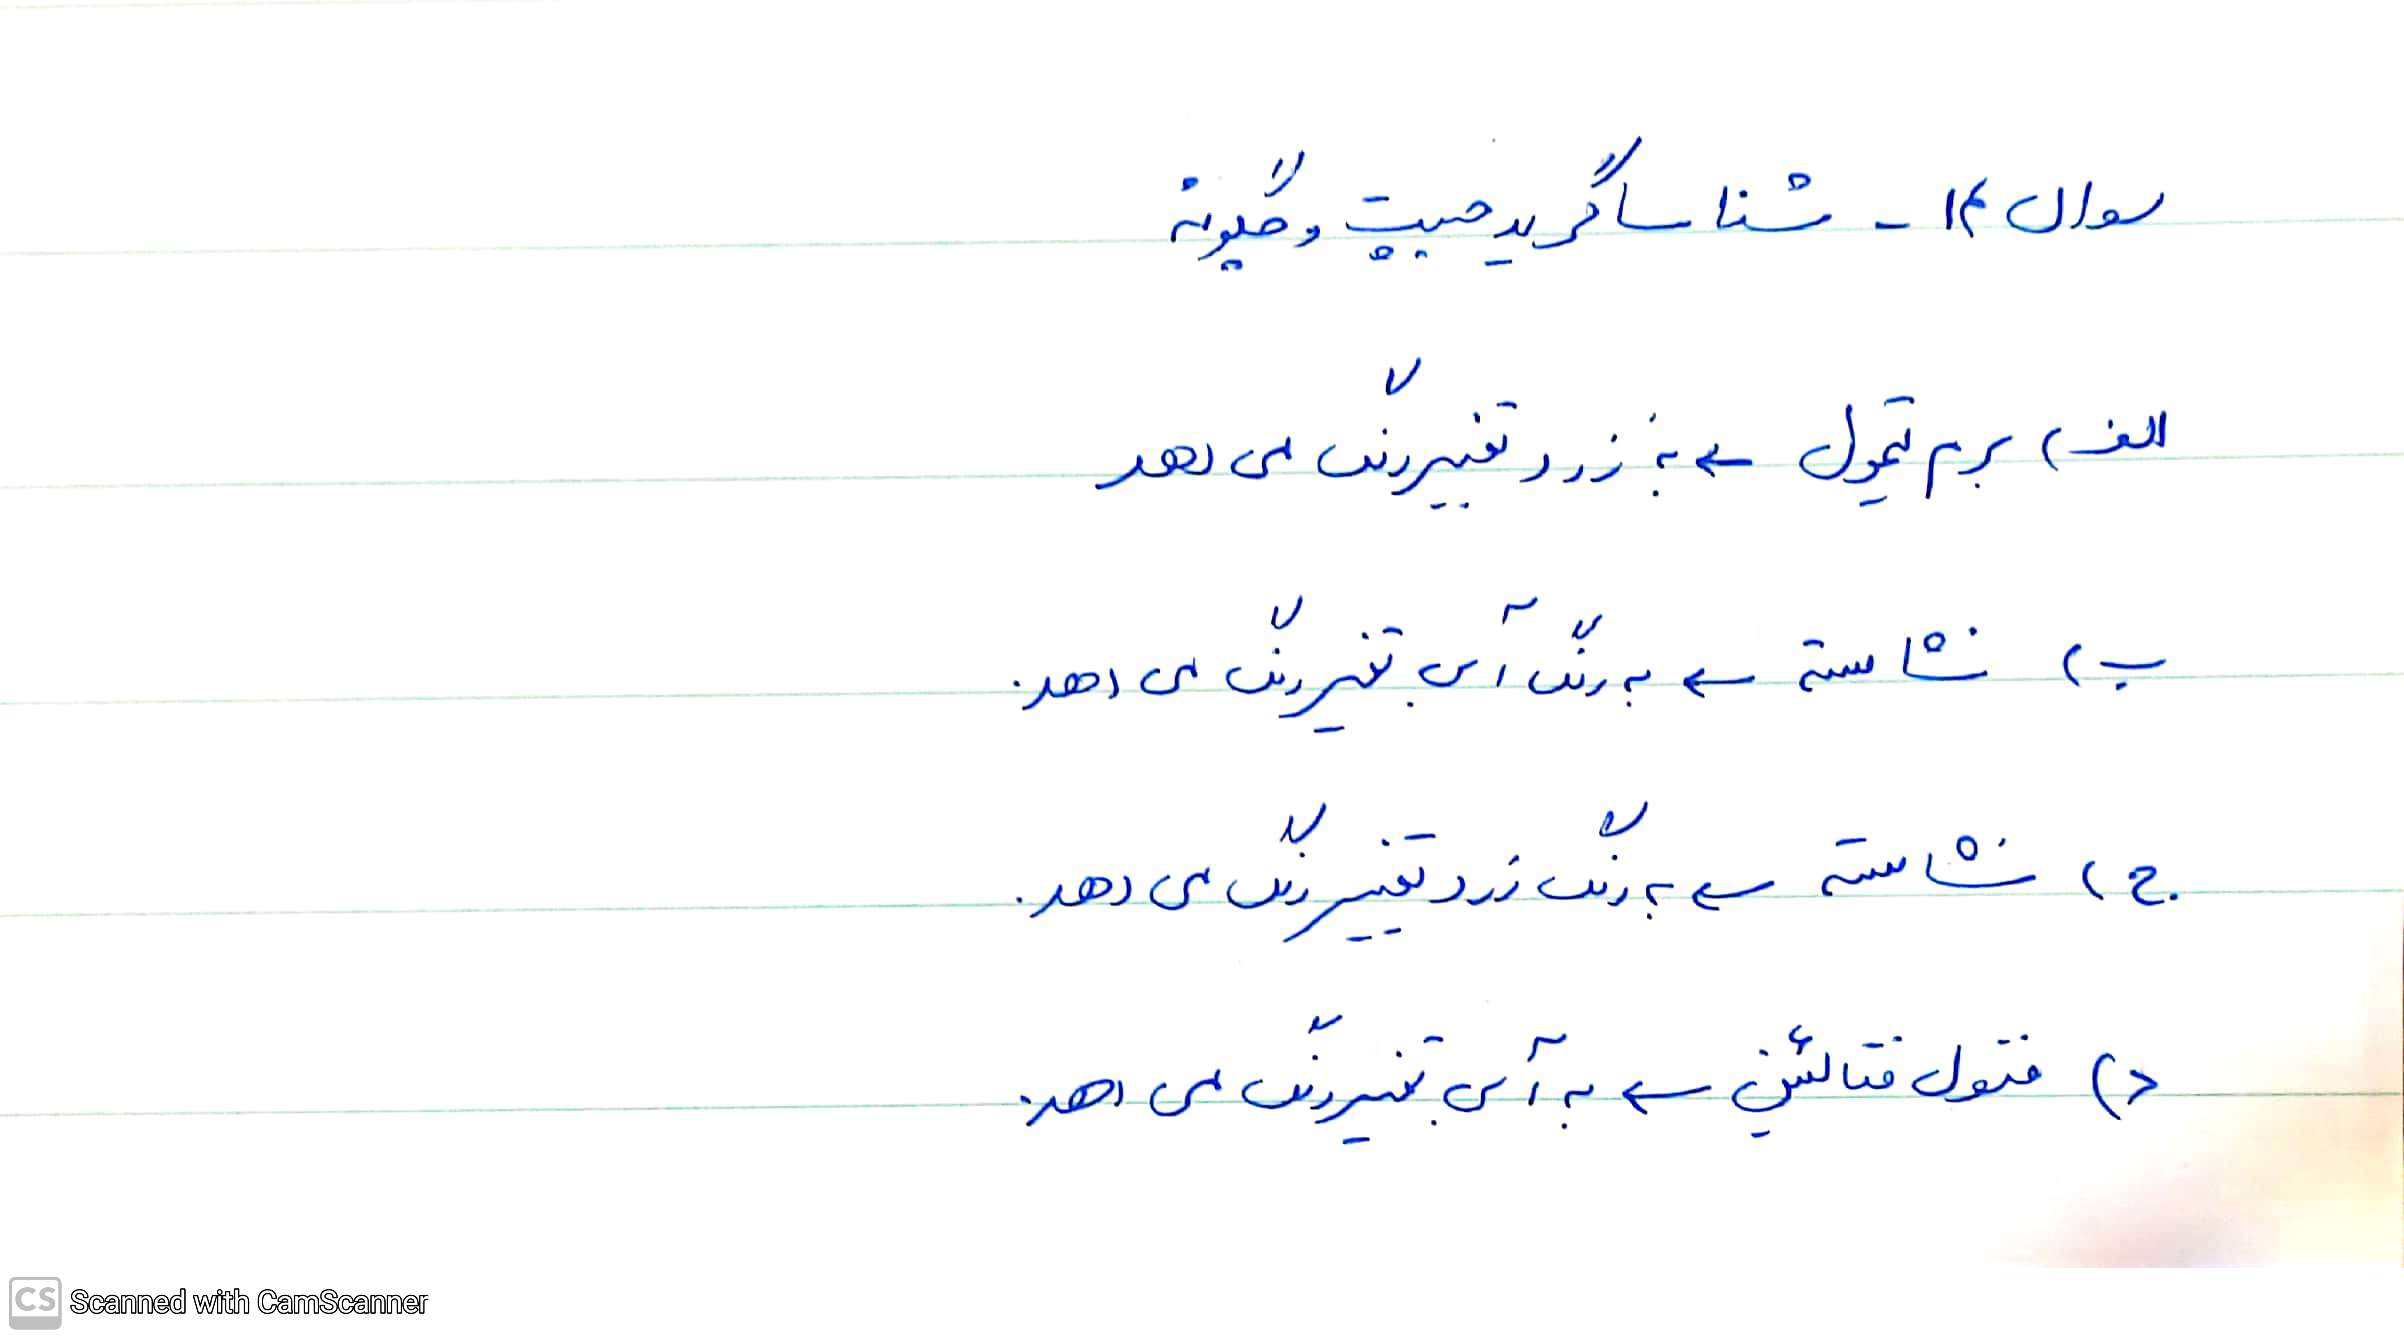 سوال ۱۴ - شناساگر ید چیست و چگونه
الف) برم تیمول ← به زرد تغییر رنگ می دهد
ب) نشاسته ← به رنگ آبی تغییر رنگ می دهد.
ج) نشاسته ← به رنگ زرد تغییر رنگ می دهد.
د) فنول فتالئین ← به آبی تغییر رنگ می دهد.
CS Scanned with CamScanner